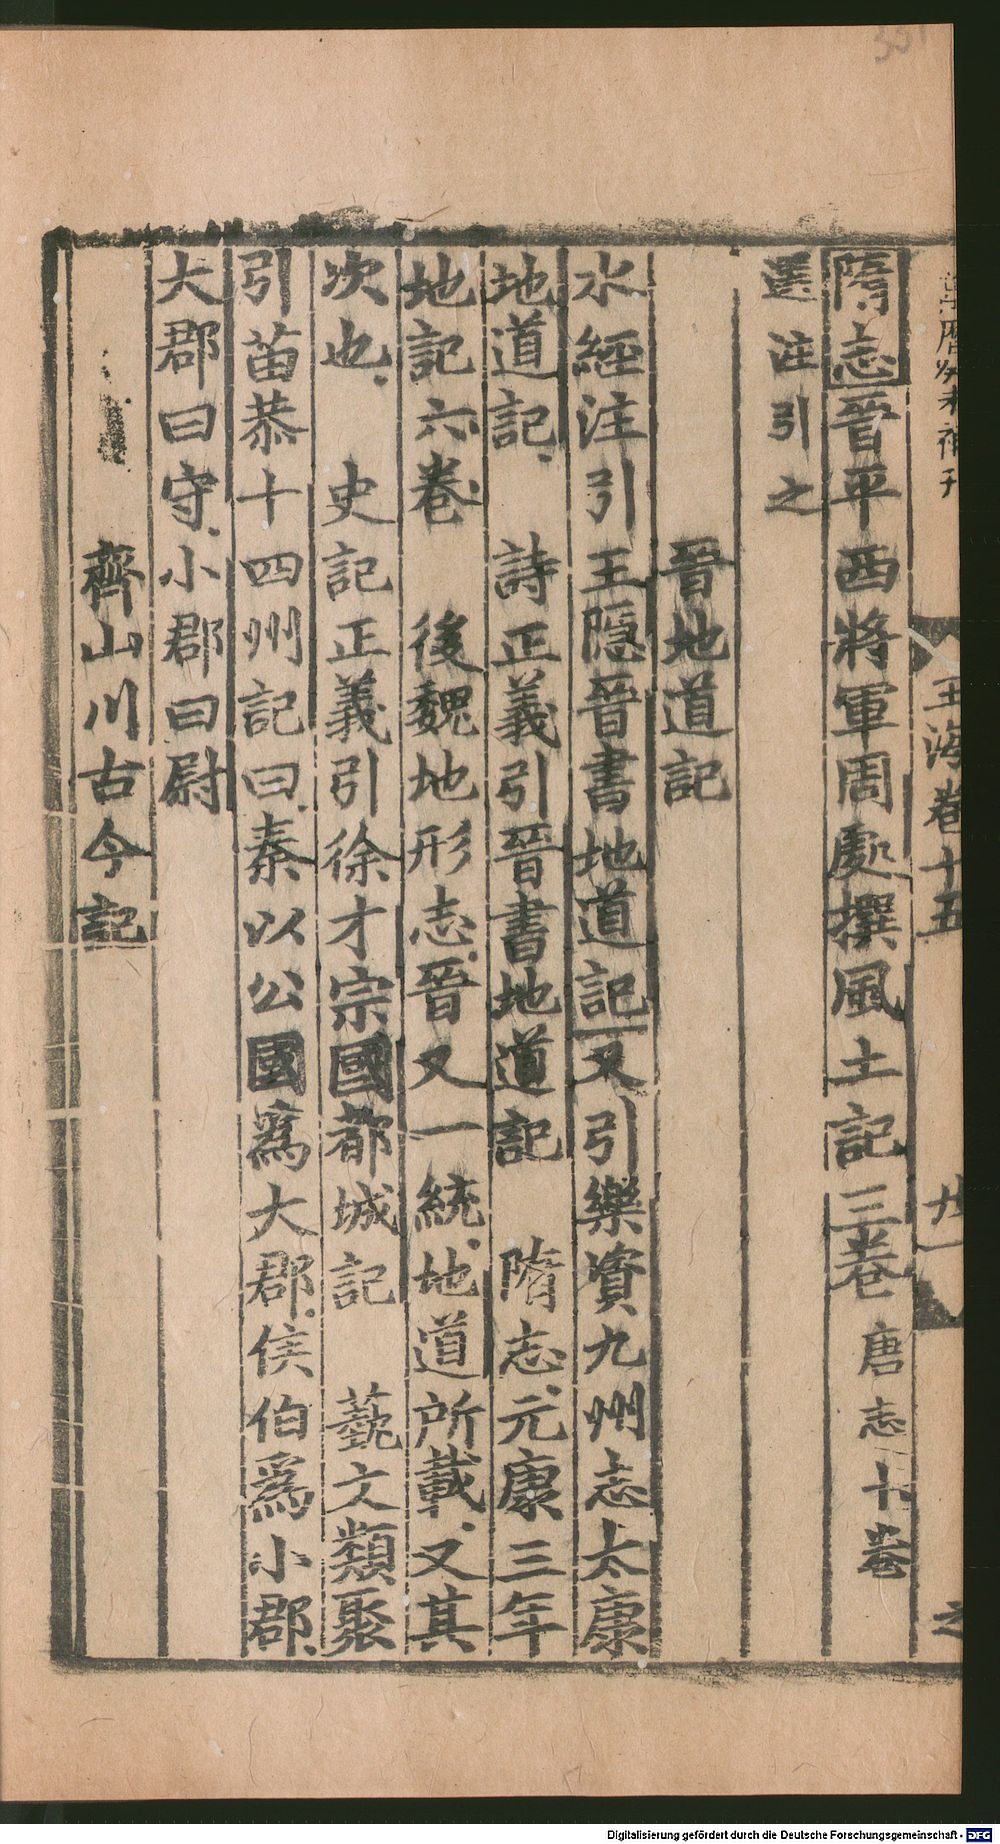 玉海卷十五
廿一
隋志晉平西將軍周處撰風土記三卷唐志十卷
選注引之
晉地道記
水經注引王隱晉書地道記又引樂資九州志太康
地道記 詩正義引晉書地道記 隋志元康三年
地記六卷 後魏地形志晉又一統地道所載又其
次也 史記正義引徐才宗國都城記 藝文類聚
引苗恭十四州記曰秦以公國爲大郡侯伯爲小郡
大郡曰守小郡曰尉
齊山川古今記
Digitalisierung gefördert durch die Deutsche Forschungsgemeinschaft - DFG